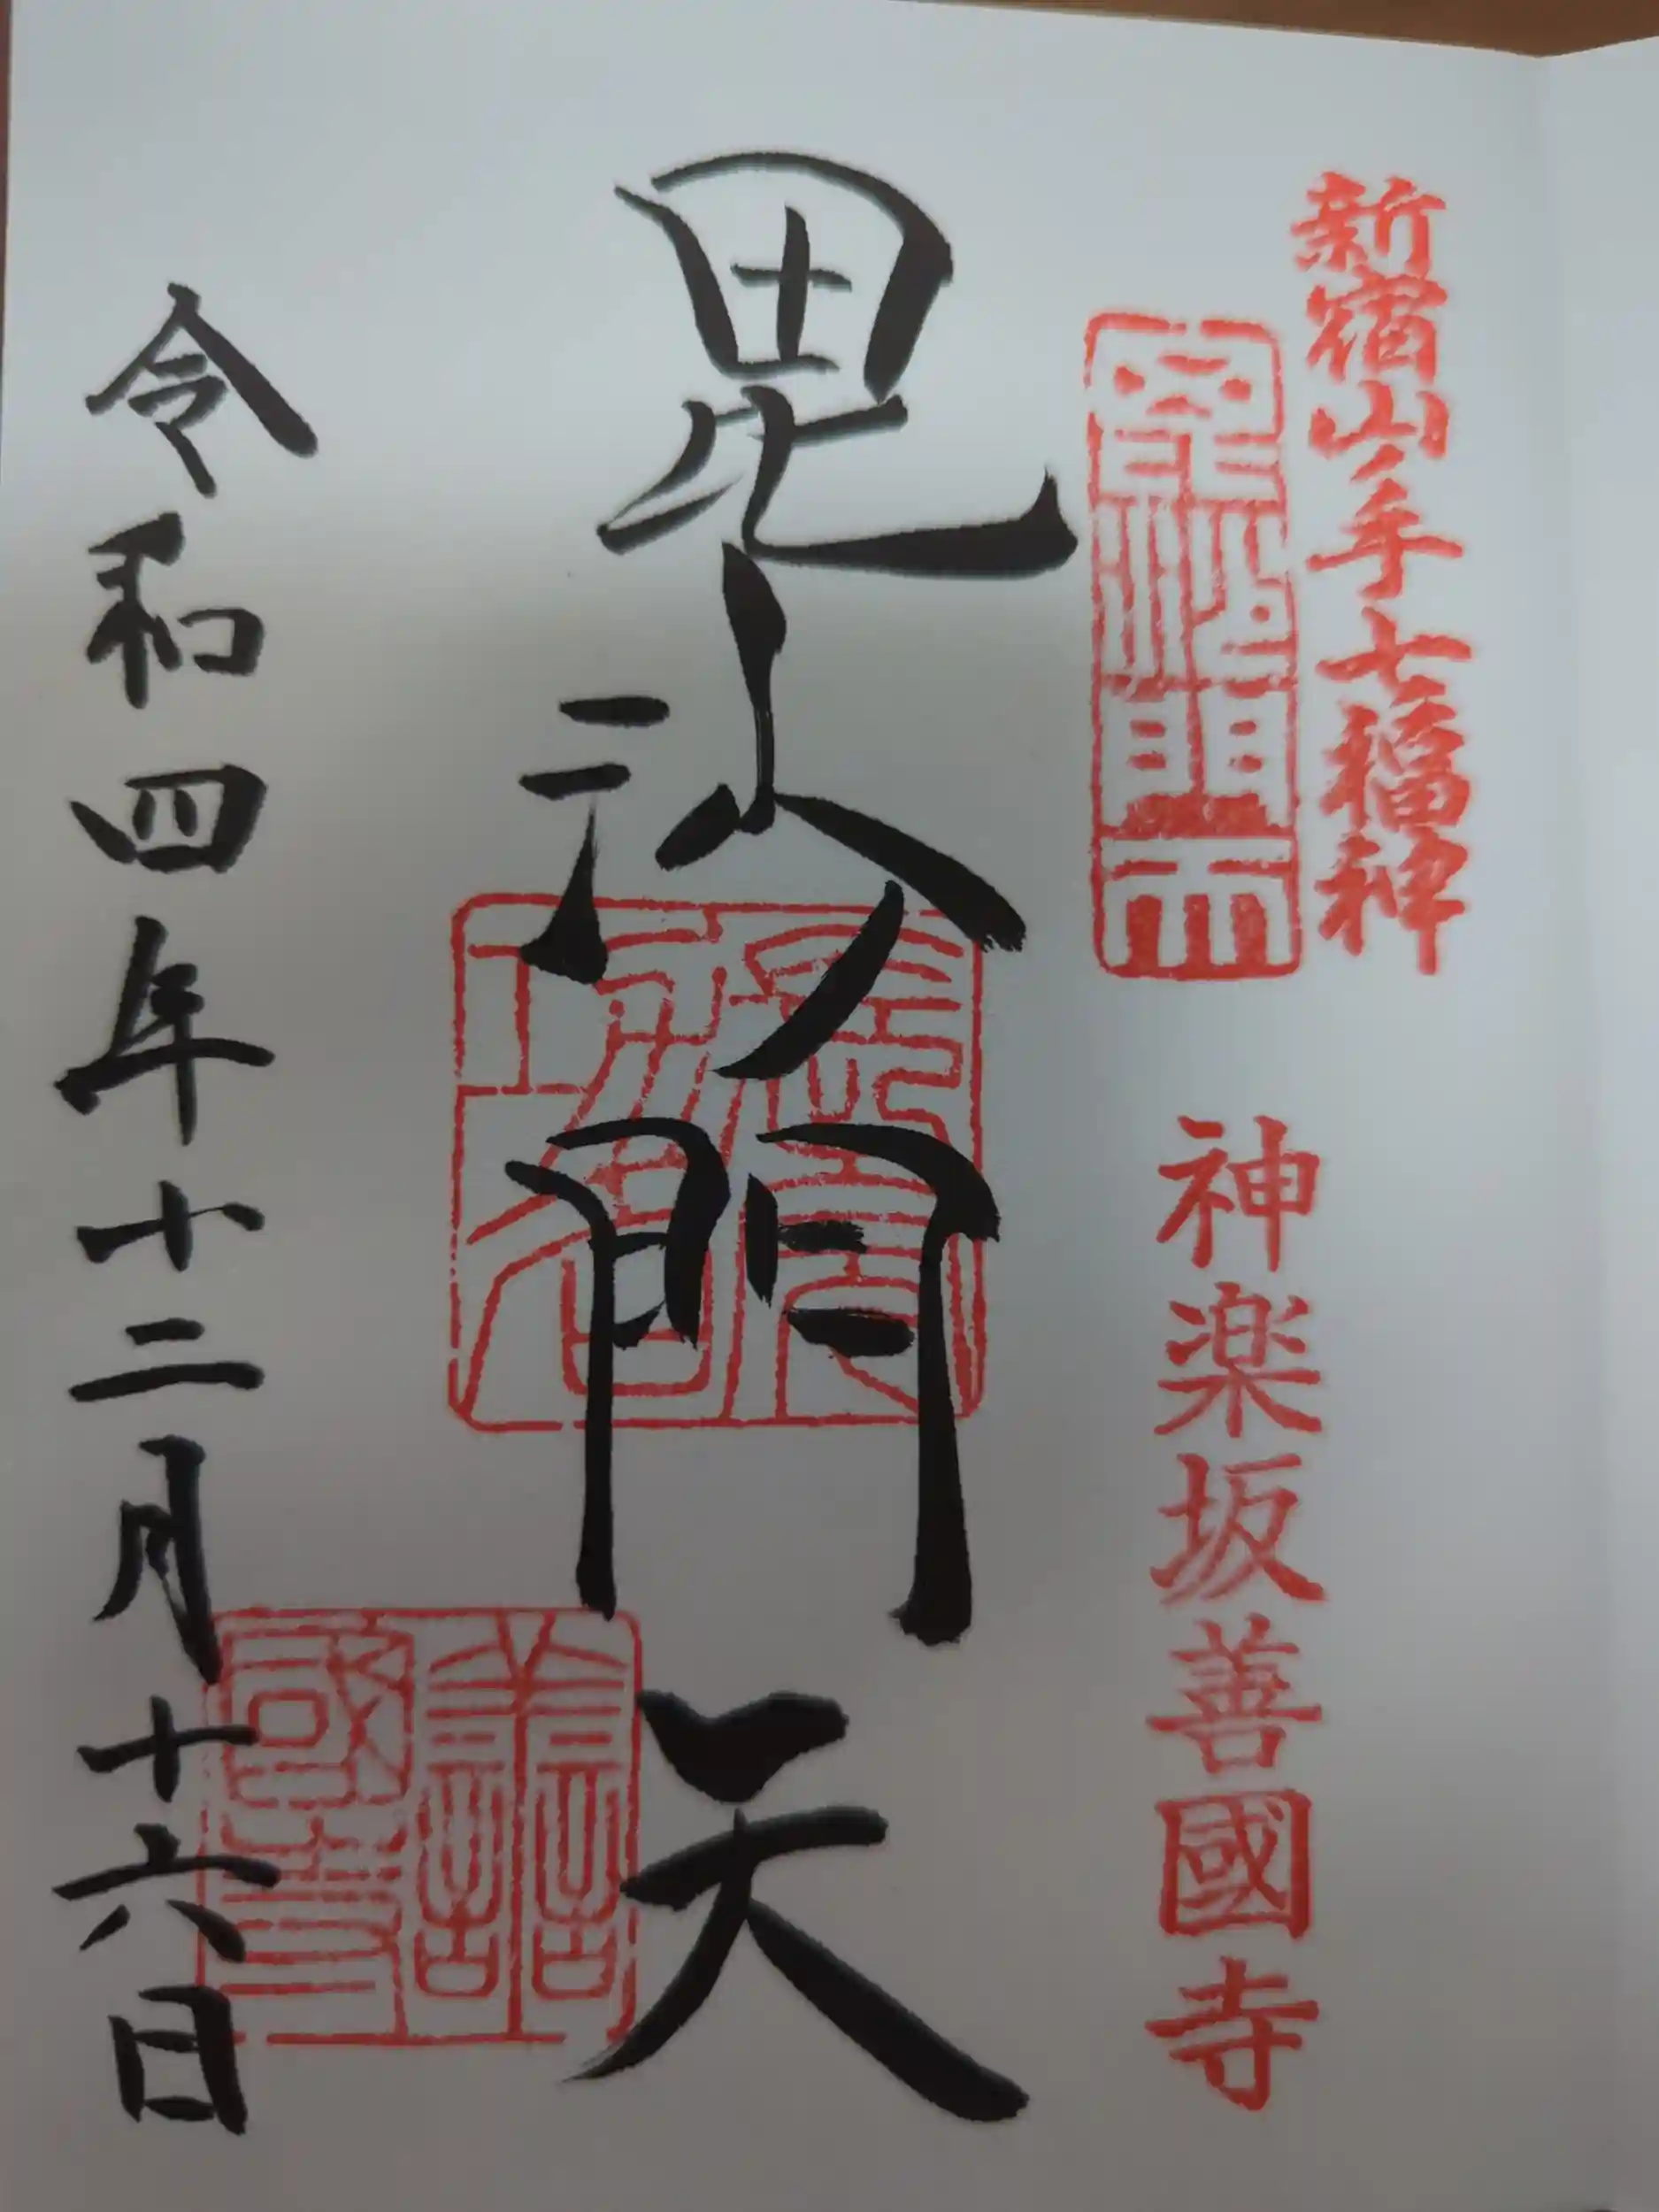 新宿山ノ手七福神
神楽坂善國寺
毘沙門天
善國寺
令和四年十二月十六日